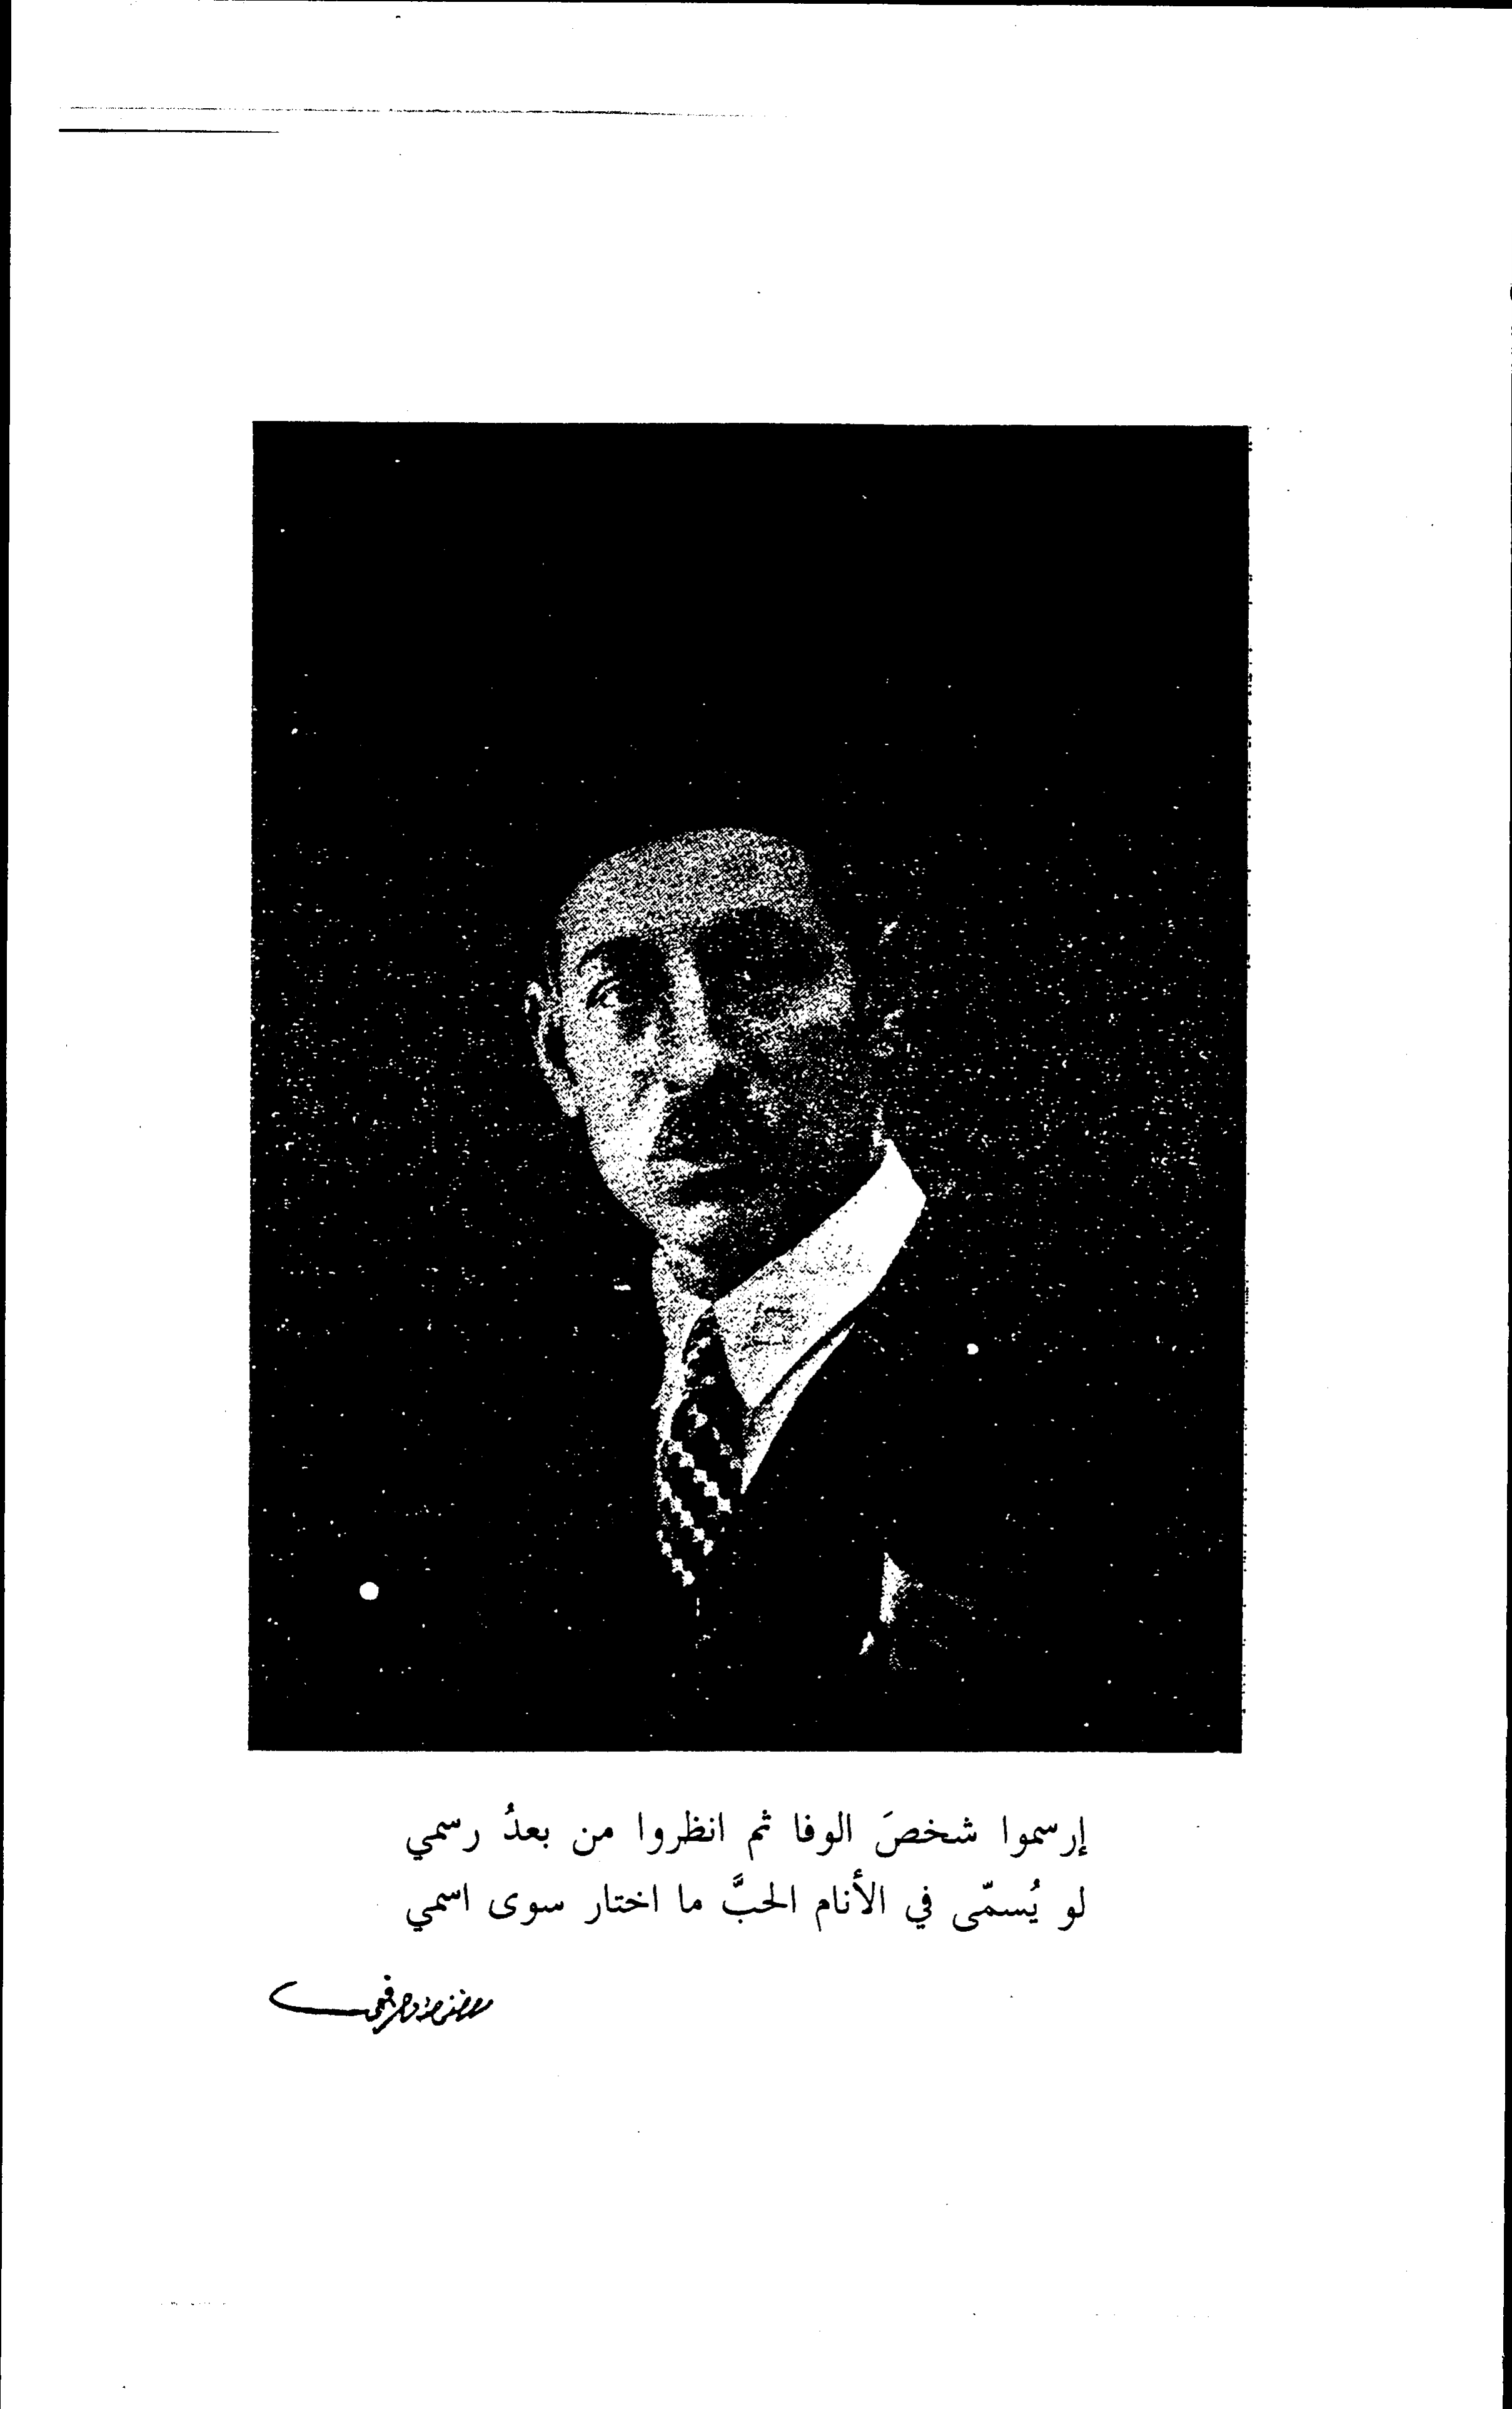 إرسموا شخصَ الوفا ثم انظروا من بعدُ رسمي
لو يُسمّى في الأنام الحبَّ ما اختار سوى اسمي
مصطفى صادق الرافعي